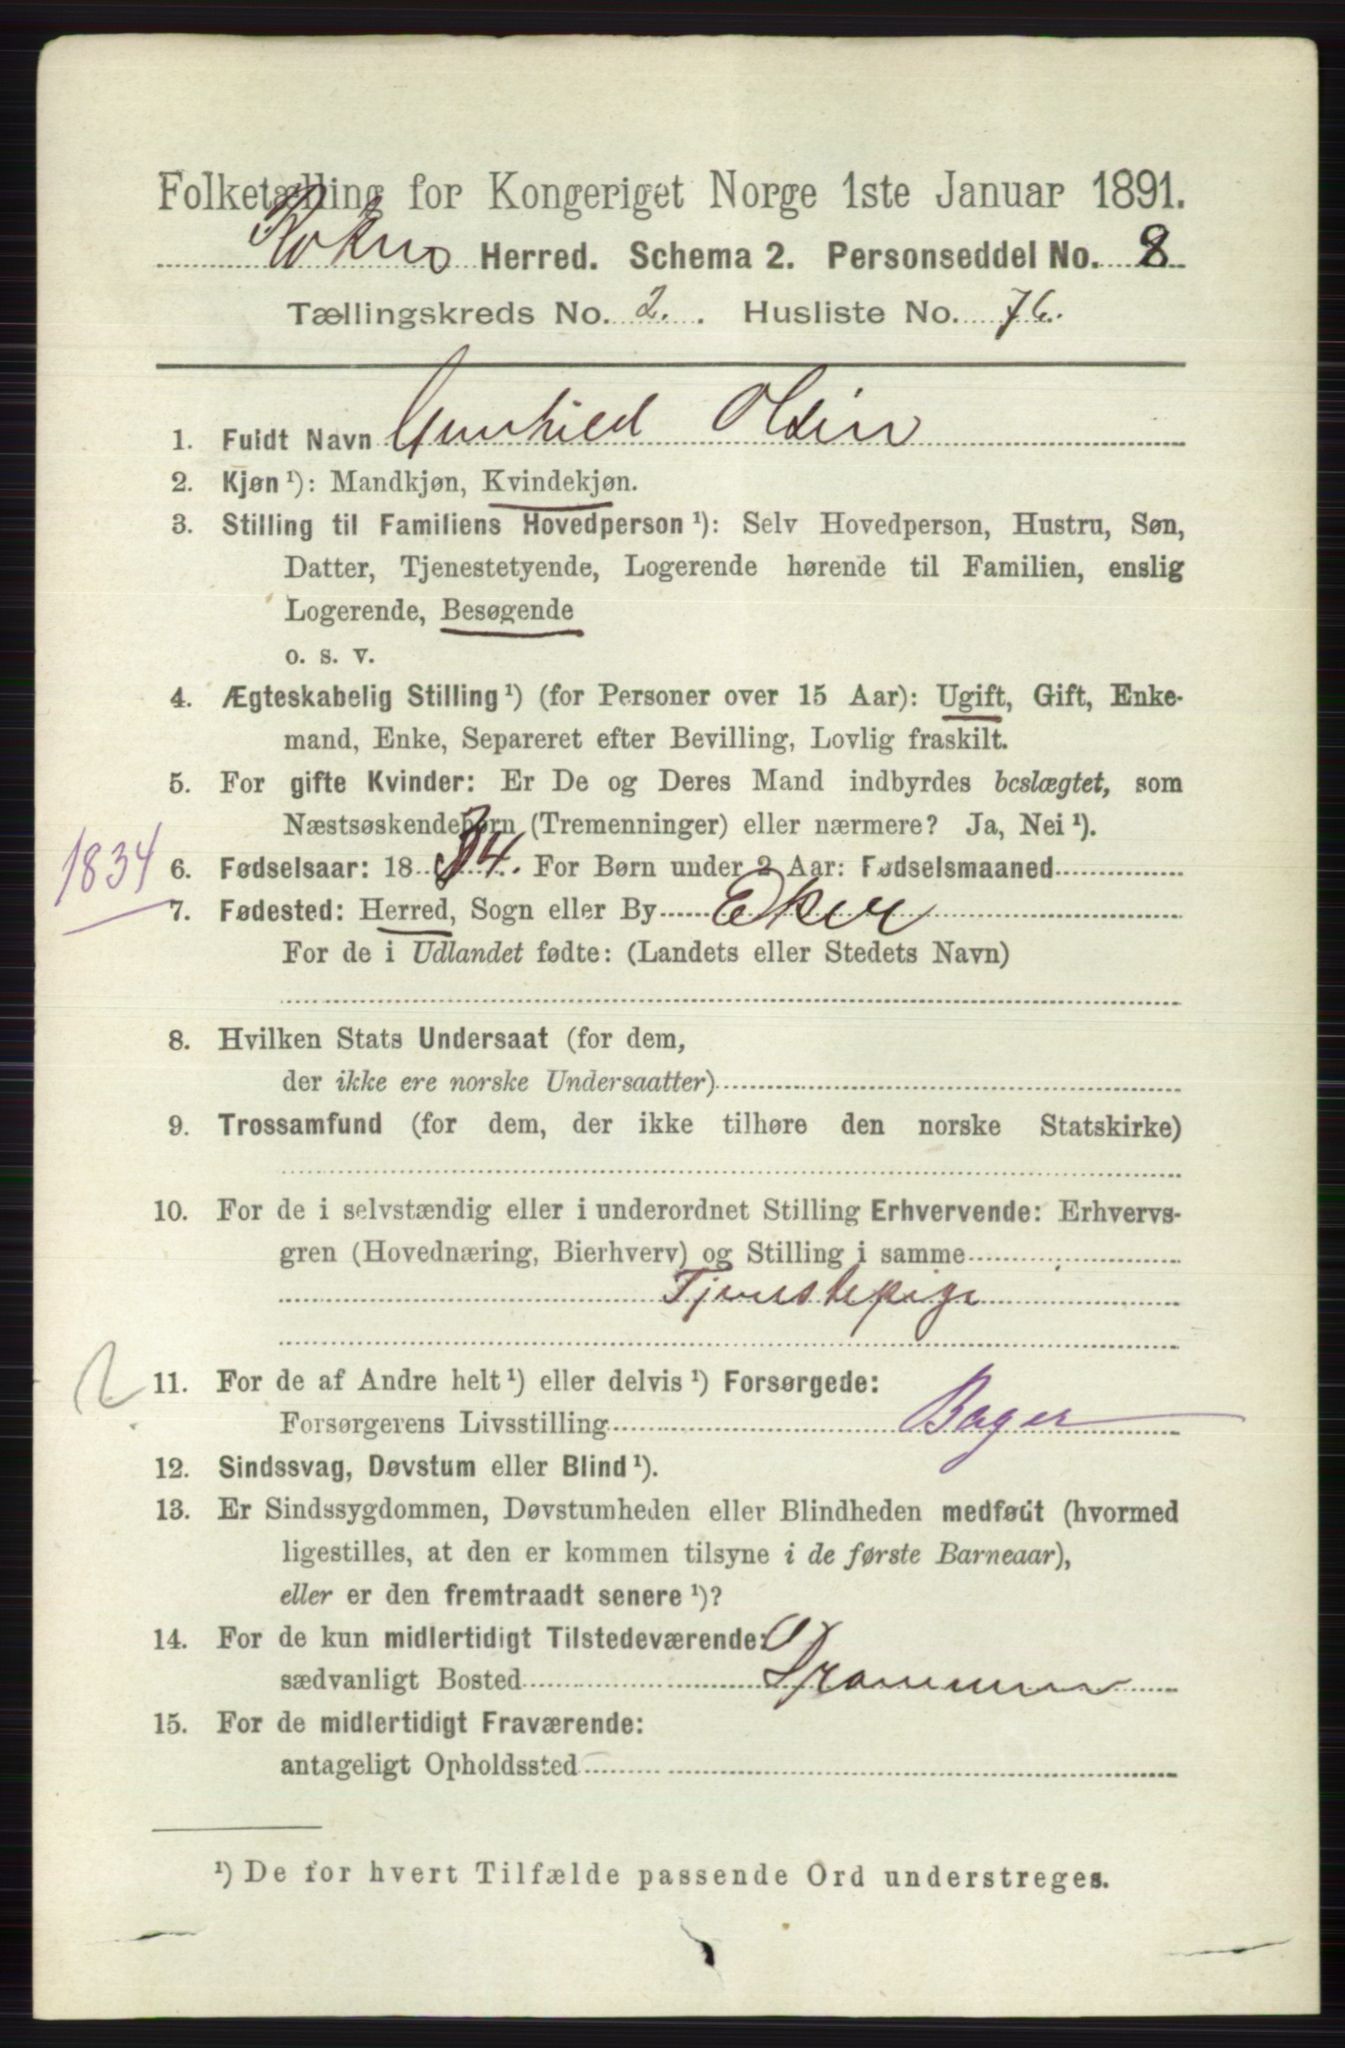 Folketælling for Kongeriget Norge 1ste Januar 1891.
Røken Herred. Schema 2. Personseddel No. 8
Tællingskreds No. 2. Husliste No. 76.
1. Fuldt Navn Gunhild Olsen
2. Kjøn ¹): Mandkjøn, Kvindekjøn.
3. Stilling til Familiens Hovedperson ¹): Selv Hovedperson, Hustru, Søn,
Datter, Tjenestetyende, Logerende hørende til Familien, enslig
Logerende, Besøgende
o. s. v.
4. Ægteskabelig Stilling ¹) (for Personer over 15 Aar): Ugift, Gift, Enke-
mand, Enke, Separeret efter Bevilling, Lovlig fraskilt.
5. For gifte Kvinder: Er De og Deres Mand indbyrdes beslægtet, som
Næstsøskendebørn (Tremenninger) eller nærmere? Ja, Nei ¹).
1834
6. Fødselsaar: 1834. For Børn under 2 Aar: Fødselsmaaned
7. Fødested: Herred, Sogn eller By Eker
For de i Udlandet fødte: (Landets eller Stedets Navn)
8. Hvilken Stats Undersaat (for dem,
der ikke ere norske Undersaatter)
9. Trossamfund (for dem, der ikke tilhøre den norske Statskirke)
10. For de i selvstændig eller i underordnet Stilling Erhvervende: Erhvervs-
gren (Hovednæring, Bierhverv) og Stilling i samme
Tjenestepige
11. For de af Andre helt ¹) eller delvis ¹) Forsørgede:
Forsørgerens Livsstilling Bager
12. Sindssvag, Døvstum eller Blind ¹).
13. Er Sindssygdommen, Døvstumheden eller Blindheden medfødt (hvormed
ligestilles, at den er kommen tilsyne i de første Barneaar),
eller er den fremtraadt senere ¹)?
14. For de kun midlertidigt Tilstedeværende:
sædvanligt Bosted Drammen
15. For de midlertidigt Fraværende:
antageligt Opholdssted
¹) De for hvert Tilfælde passende Ord understreges.